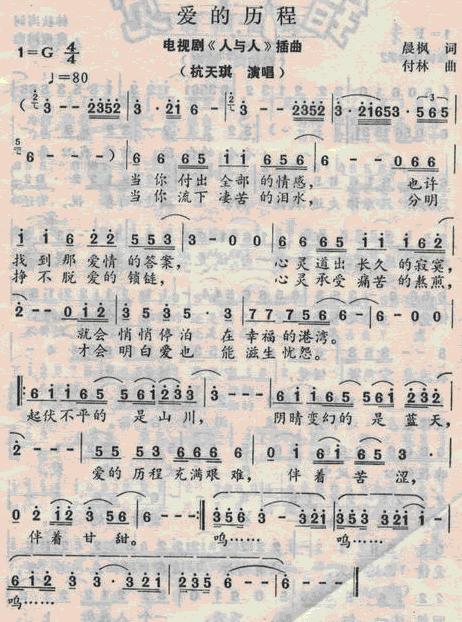 爱的历程
电视剧《人与人》插曲
1=G 4/4
晨枫 词
♩=80
(杭天琪 演唱)
付林 曲
(3 - - 2352 | 3 · 21 6 - | 3 - - 2352 | 3 · 21653 · 565 |
6 - - - ) | 6 6 65 11 656 | 6 - - 066 |
当你付出 全部的情感, 也许
当你流下 凄苦的泪水, 分明
1 1 6 22 553 | 3 - 0 0 | 6 6 65 11 162 |
找到那爱情的答案, 心灵道出长久的寂寞,
挣不脱爱的锁链, 心灵承受痛苦的熬煎,
2 - - 012 | 3 3 32 1 2 3 | 77 756 6 - | 6 - 0 0 |
就会悄悄停泊 在幸福的港湾。
才会明白爱也 能滋生忧怨。
‖: 61165 561233 | 3 - - - | 61165 561232 |
起伏不平的 是山川, 阴晴变幻的是蓝天,
2 - - - | 55 53 666 6 | 0 1 61 65 3 · |
爱的历程充满艰难, 伴着苦涩,
0 2 12 3 56 | 6 - - - :‖ 356 3 - 321 | 353 321 1 - |
伴着甘甜。 呜…… 呜……
612 3 3 · 321 | 235 6 - - 6 - - - ‖
呜……